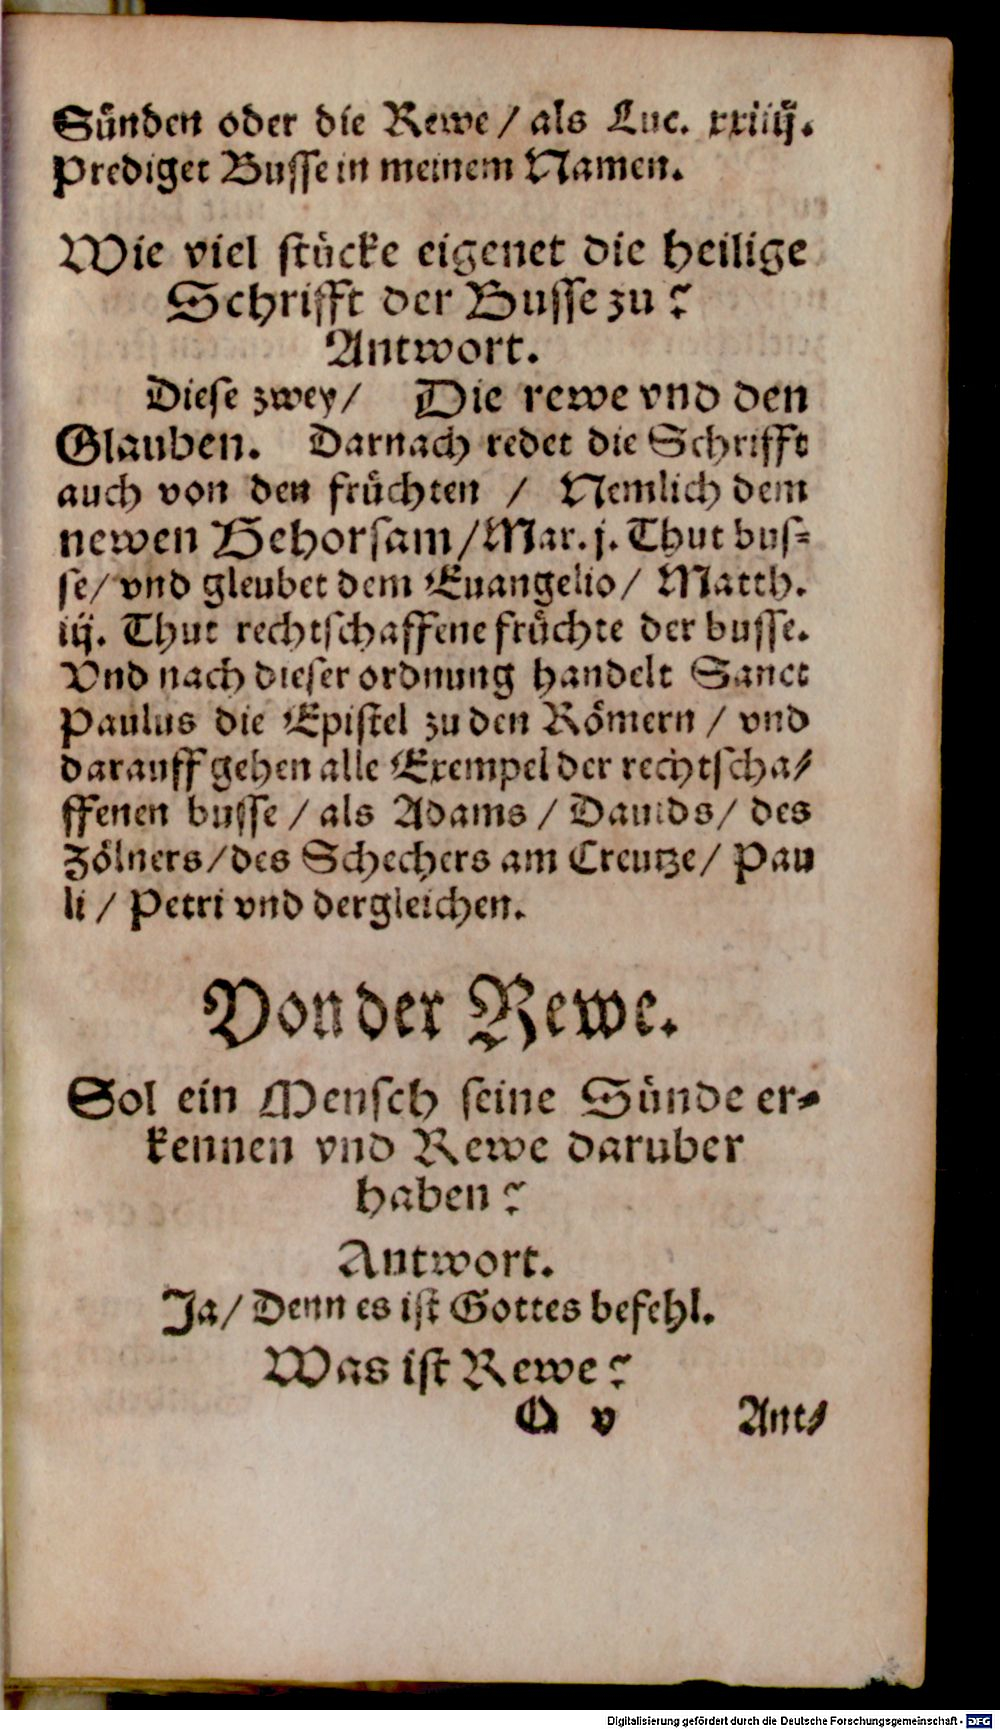 Sünden oder die Rewe / als Luc. xxiiij.
Prediget Busse in meinem Namen.
Wie viel stücke eigenet die heilige
Schrifft der Busse zu?
Antwort.
Diese zwey / Die rewe vnd den
Glauben. Darnach redet die Schrifft
auch von den früchten / Nemlich dem
newen Gehorsam / Mar. j. Thut bus-
se / vnd gleubet dem Euangelio / Matth.
iij. Thut rechtschaffene früchte der busse.
Vnd nach dieser ordnung handelt Sanct
Paulus die Epistel zu den Römern / vnd
darauff gehen alle Exempel der rechtscha-
ffenen busse / als Adams / Dauids / des
Zölners / des Schechers am Creutze / Pau
li / Petri vnd dergleichen.
Von der Rewe.
Sol ein Mensch seine Sünde er-
kennen vnd Rewe daruber
haben?
Antwort.
Ja / Denn es ist Gottes befehl.
Was ist Rewe?
Q v Ant-
Digitalisierung gefördert durch die Deutsche Forschungsgemeinschaft - DFG